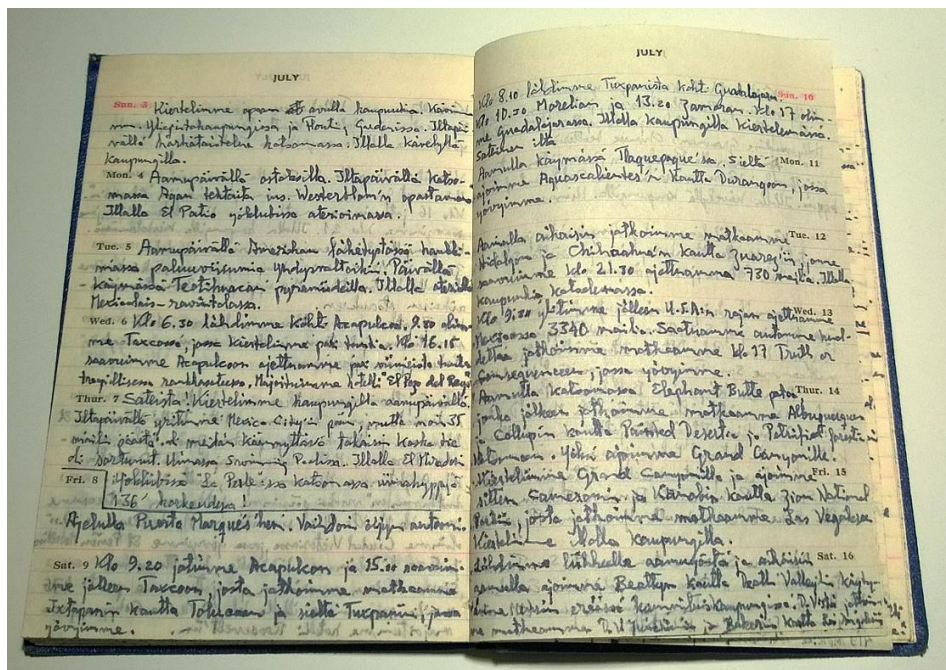 JULY
Sun. 3 Kiertelimme oppaan avulla kaupunkia. Kävim-
me Yliopistokaupungissa ja Floating Gardenissa. Iltapäi-
vällä härkätaistelua katsomassa. Illalla kävelyllä
kaupungilla.
Mon. 4 Aamupäivällä ostoksilla. Iltapäivällä katso-
massa Agan tehtaita ins. Westerblom'in opastamana
Illalla El Patio yöklubissa aterioimassa.
Tue. 5 Aamupäivällä Amerikan lähetystössä hankki-
massa paluuviisumia Yhdysvaltoihin. Päivällä
käymässä Teotihuacan pyramideilla. Illalla aterialla
ravintolassa.
Wed. 6 Klo 6.30 lähdimme kohti Acapulcoa, 9.30 olim-
me Taxcossa, jossa kiertelimme pari tuntia. Klo 16.15
saavuimme Acapulcoon ajettuamme pari viimeistä tuntia
trooppillisessa rankkasateessa. Majoituimme hotelli El Pozo del Rey
Thur. 7 Sateista! Kiertelimme kaupungilla aamupäivällä.
Iltapäivällä yritimme Mexico City'n päin, mutta noin 35
mailin päästä oli meidän käännyttävä takaisin koska tie
oli sortunut. Uimassa Swimming Poolissa. Illalla El Mirador
Fri. 8 yöklubissa La Perla:ssa katsomassa uimahyppyjä
136' korkeudesta!
Ajelulla Puerto Marqués'hen. Vaihdoin öljyn autooni
Sat. 9 Klo 9.20 jätimme Acapulcon ja 15.10 saavuim-
me jälleen Taxcoon, josta jatkoimme matkaamme
Ixtapanin kautta Tolucaan ja sieltä Tuxpaniin, jossa
yövyimme.
JULY
Klo 8.10 lähdimme Tuxpanista koht. Guadalajaraa, Sun. 10
Klo 10.30 Morelian ja 13.20 Zamoran. Klo 17 olim-
me Guadalajarassa. Illalla kaupungilla kiertelemässä.
Sateinen ilta
Aamulla käymässä Tlaquepaque'ssa. Sieltä Mon. 11
ajoimme Aguascalientes'in kautta Durangoon, jossa
yövyimme.
Aamulla aikaisin jatkoimme matkaamme Tue. 12
Hidalgon ja Chihuahua'n kautta Juarez'iin jonne
saavuimme klo 21.30 ajettuamme 730 mailia. Illalla
kaupunkia katselemassa.
Klo 9:30 ylitimme jälleen U.S.A:n rajan ajettuamme Wed. 13
Mexicossa 3340 mailia. Saatuamme automme huol-
dettua jatkoimme matkaamme klo 17 Truth or
Consequences, jossa yövyimme.
Aamulla katsomassa Elephant Butte patoa Thur. 14
jonka jälkeen jatkoimme matkaamme Albuquerquen
ja Gallupin kautta Painted Desertia ja Petrified forestia
katsomaan. Yöksi ajoimme Grand Canyonille.
Kiertelimme Grand Canyonilla ja ajoimme Fri. 15
sitten Cameronin ja Kanabin kautta Zion National
Parkiin, josta jatkoimme matkaamme Las Vegasiin
Kiertelimme illalla kaupungilla.
liikkeelle aamuyöstä ja aikaisin Sat. 16
aamulla ajoimme Beattyn kautta Death Valleyhin käyty-
ämme eräässä kummituskaupungissa. D. V:stä jatkoim-
me matkaamme ja Bakersin kautta Los Angelesiin